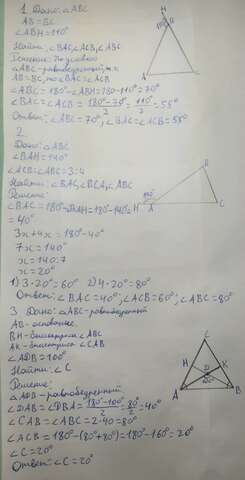 1. Дано: △ABC
AB=BC
∠ABH=110°
Найти: ∠BAC, ∠ACB, ∠ABC
Решение: По условию
△ABC-равнобедренный, т.к
AB=BC, то ∠BAC=∠ACB
∠ABC=180°-∠ABH=180-110°=70°
∠BAC=∠ACB=180°-70°/2=110°/2=55°
Ответ: ∠ABC=70°, ∠BAC=∠ACB=55°
H
110°
B
A
2.
Дано: △ABC
∠BAH=140°
∠ACB:∠ABC=3:4
Найти: ∠BAC, ∠BCA, ∠ABC
Решение:
∠BAC=180°-∠BAH=180-140°=
=40°
3x+4x=180°-40°
7x=140°
x=140:7
x=20°
1) 3·20°=60° 2) 4·20°=80°
Ответ: ∠BAC=40°, ∠ACB=60°, ∠ABC=80°
B
140°
H
A
C
3. Дано: △ABC-равнобедренный
AB-основание.
BH-биссектриса ∠ABC
AK-биссектриса ∠CAB
∠ADB=100°
Найти: ∠C
Решение:
△ADB-равнобедренный
∠DAB=∠DBA=180°-100°/2=80°/2=40°
∠CAB=∠ABC=2·40=80°
∠ACB=180°-(80°+80°)=180°-160°=20°
∠C=20°
Ответ: ∠C=20°
C
H
K
D
100°
A
B